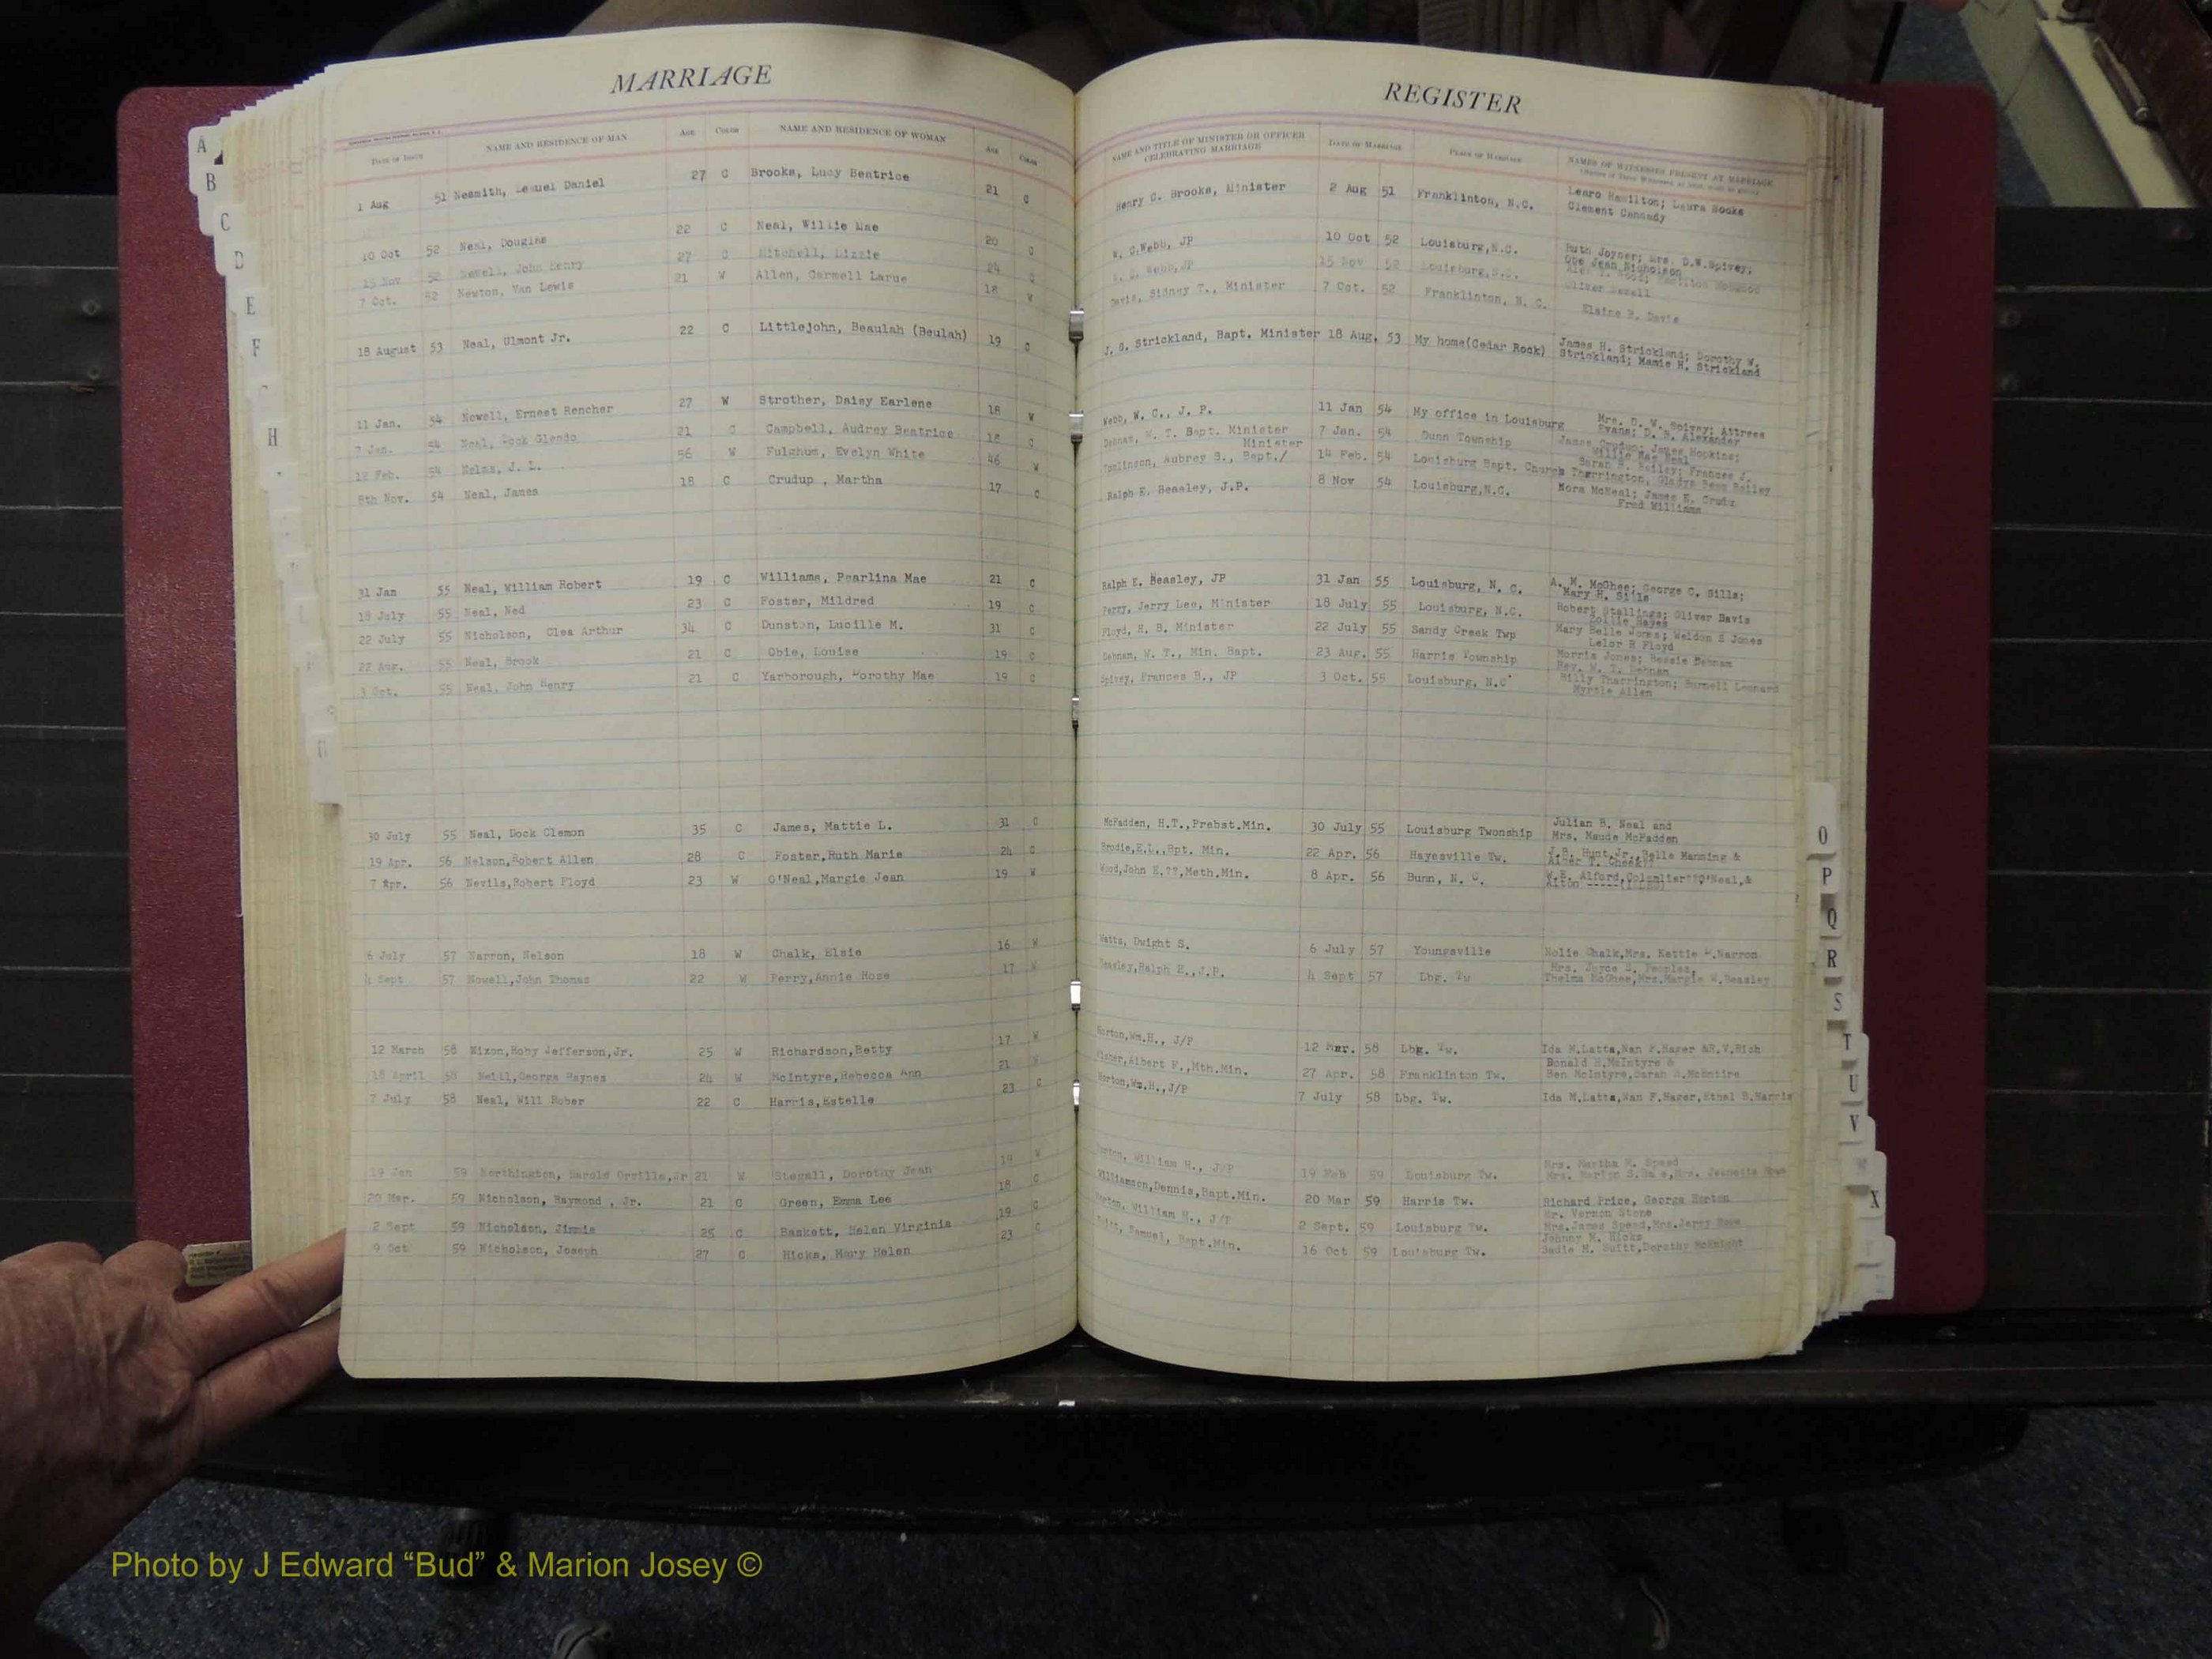 MARRIAGE
DATE OF ISSUE NAME AND RESIDENCE OF MAN AGE COLOR NAME AND RESIDENCE OF WOMAN AGE COLOR
1 Aug 51 Nesmith, Lemuel Daniel 27 C Brooks, Lucy Beatrice 21 C
10 Oct 52 Neal, Douglas 22 C Neal, Willie Mae 20 C
15 Nov 52 Newell, John Henry 27 C Mitchell, Lizzie 24 C
7 Oct. 52 Newton, Van Lewis 21 W Allen, Carmell Larue 18 W
18 August 53 Neal, Ulmont Jr. 22 C Littlejohn, Beaulah (Beulah) 19 C
11 Jan. 54 Nowell, Ernest Rencher 27 W Strother, Daisy Earlene 18 W
7 Jan. 54 Neal, Dock Glendo 21 C Campbell, Audrey Beatrice 18 C
12 Feb. 54 Nelms, J. L. 56 W Fulghum, Evelyn White 46 W
8th Nov. 54 Neal, James 18 C Crudup , Martha 17 C
31 Jan 55 Neal, William Robert 19 C Williams, Pearlina Mae 21 C
18 July 55 Neal, Ned 23 C Foster, Mildred 19 C
22 July 55 Nicholson, Clea Arthur 34 C Dunston, Lucille M. 31 C
22 Aug. 55 Neal, Brook 21 C Obie, Louise 19 C
3 Oct. 55 Neal, John Henry 21 C Yarborough, Dorothy Mae 19 C
30 July 55 Neal, Dock Clemon 35 C James, Mattie L. 31 C
19 Apr. 56 Nelson,Robert Allen 28 C Foster,Ruth Marie 24 C
7 Apr. 56 Nevils,Robert Floyd 23 W O'Neal,Margie Jean 19 W
6 July 57 Narron, Nelson 18 W Chalk, Elsie 16 W
4 Sept 57 Nowell,John Thomas 22 W Perry,Annie Rose 17 W
12 March 58 Nixon,Hoby Jefferson,Jr. 25 W Richardson,Betty 17 W
18 April 58 Neill,George Haynes 24 W McIntyre,Rebecca Ann 21 W
7 July 58 Neal, Will Rober 22 C Harris,Estelle 23 C
19 Jan 59 Northington, Harold Orville,Jr 21 W Stegall, Dorothy Jean 19 W
20 Mar. 59 Nicholson, Raymond , Jr. 21 C Green, Emma Lee 18 C
2 Sept 59 Nicholson, Jimmie 25 C Baskett, Helen Virginia 19 C
9 Oct 59 Nicholson, Joseph 27 C Hicks, Mary Helen 23 C
REGISTER
NAME AND TITLE OF MINISTER OR OFFICER CELEBRATING MARRIAGE DATE OF MARRIAGE PLACE OF MARRIAGE NAMES OF WITNESSES PRESENT AT MARRIAGE
Henry C. Brooks, Minister 2 Aug 51 Franklinton, N.C. Learo Hamilton; Laura Hooks
Clement Cannady
W. C.Webb, JP 10 Oct 52 Louisburg,N.C. Ruth Joyner; Mrs. D.W.Spivey;
Obe Jean Nicholson
W. C. Webb,JP 15 Nov 52 Louisburg,N.C.
Oliver Newell
Davis, Sidney T., Minister 7 Oct. 52 Franklinton, N. C. Elaine B. Davis
J. G. Strickland, Bapt. Minister 18 Aug. 53 My home(Cedar Rock) James H. Strickland; Dorothy W.
Strickland; Mamie H. Strickland
Webb, W. C., J. P. 11 Jan 54 My office in Louisburg Mrs. D. W. Spivey; Attress
Evans; D. S. Alexander
Debnam, W. T. Bapt. Minister 7 Jan. 54 Dunn Township James Crudup; James Hopkins;
Willie Mae Neal
Tomlinson, Aubrey S., Bapt./ Minister 14 Feb. 54 Louisburg Bapt. Church Sarah B. Bailey; Frances J.
Tharrington, Gladys Bess Bailey
Ralph E. Beasley, J.P. 8 Nov 54 Louisburg,N.C. Nora McNeal; James E. Crudu
Fred Williams
Ralph E. Beasley, JP 31 Jan 55 Louisburg, N. C. A. M. McGhee; George C. Sills;
Mary H. Sills
Perry, Jerry Lee, Minister 18 July 55 Louisburg, N.C. Robert Stallings; Oliver Davis
Zollie Hayes
Floyd, H. B. Minister 22 July 55 Sandy Creek Twp Mary Belle Jones; Weldon S Jones
Lelor R Floyd
Debnam, W. T., Min. Bapt. 23 Aug. 55 Harris Township Morris Jones; Bessie Debnam
Rev. W. T. Debnam
Spivey, Frances B., JP 3 Oct. 55 Louisburg, N.C Billy Tharrington; Burnell Leonard
Myrtle Allen
McFadden, H.T.,Prebst.Min. 30 July 55 Louisburg Twonship Julian B. Neal and
Mrs. Maude McFadden
Brodie,E.L.,Bpt. Min. 22 Apr. 56 Hayesville Tw. J.B. Hunt,Jr.,Belle Manning &
Wood,John E.??,Meth.Min. 8 Apr. 56 Bunn, N. C. W.E. Alford, O'Neal,&
Alton
Watts, Dwight S. 6 July 57 Youngsville Nolie Chalk,Mrs. Kattie P.Narron
Beasley,Ralph E.,J.P. 4 Sept 57 Lbg. Tw Mrs. Joyce S. Peoples,
Thelma McGhee,Mrs.Margie W.Beasley
Horton,Wm.H., J/P 12 Mar. 58 Lbg. Tw. Ida M.Latta,Nan F.Hager &R.V.Rich
Fisher,Albert F.,Mth.Min. 27 Apr. 58 Franklinton Tw. Donald H.McIntyre &
Ben McIntyre,Sarah A.McIntire
Horton,Wm.H.,J/P 7 July 58 Lbg. Tw. Ida M.Latta,Nan F.Hager,Ethel B.Harris
Horton, William H., J/P 19 Feb 59 Louisburg Tw. Mrs. Martha M. Speed
Williamson,Dennis,Bapt.Min. 20 Mar 59 Harris Tw. Richard Price, George Horton
Mr. Vernon Stone
Horton, William H., J/P 2 Sept. 59 Louisburg Tw. Mrs.James Speed,Mrs.Jerry Rowe
Johnny M. Hicks
Buitt, Samuel, Bapt.Min. 16 Oct 59 Louisburg Tw. Sadie M. Buitt,Dorothy McKnight
A
B
C
D
E
F
H
O
P
Q
R
S
T
U
V
X
Photo by J Edward “Bud” & Marion Josey ©